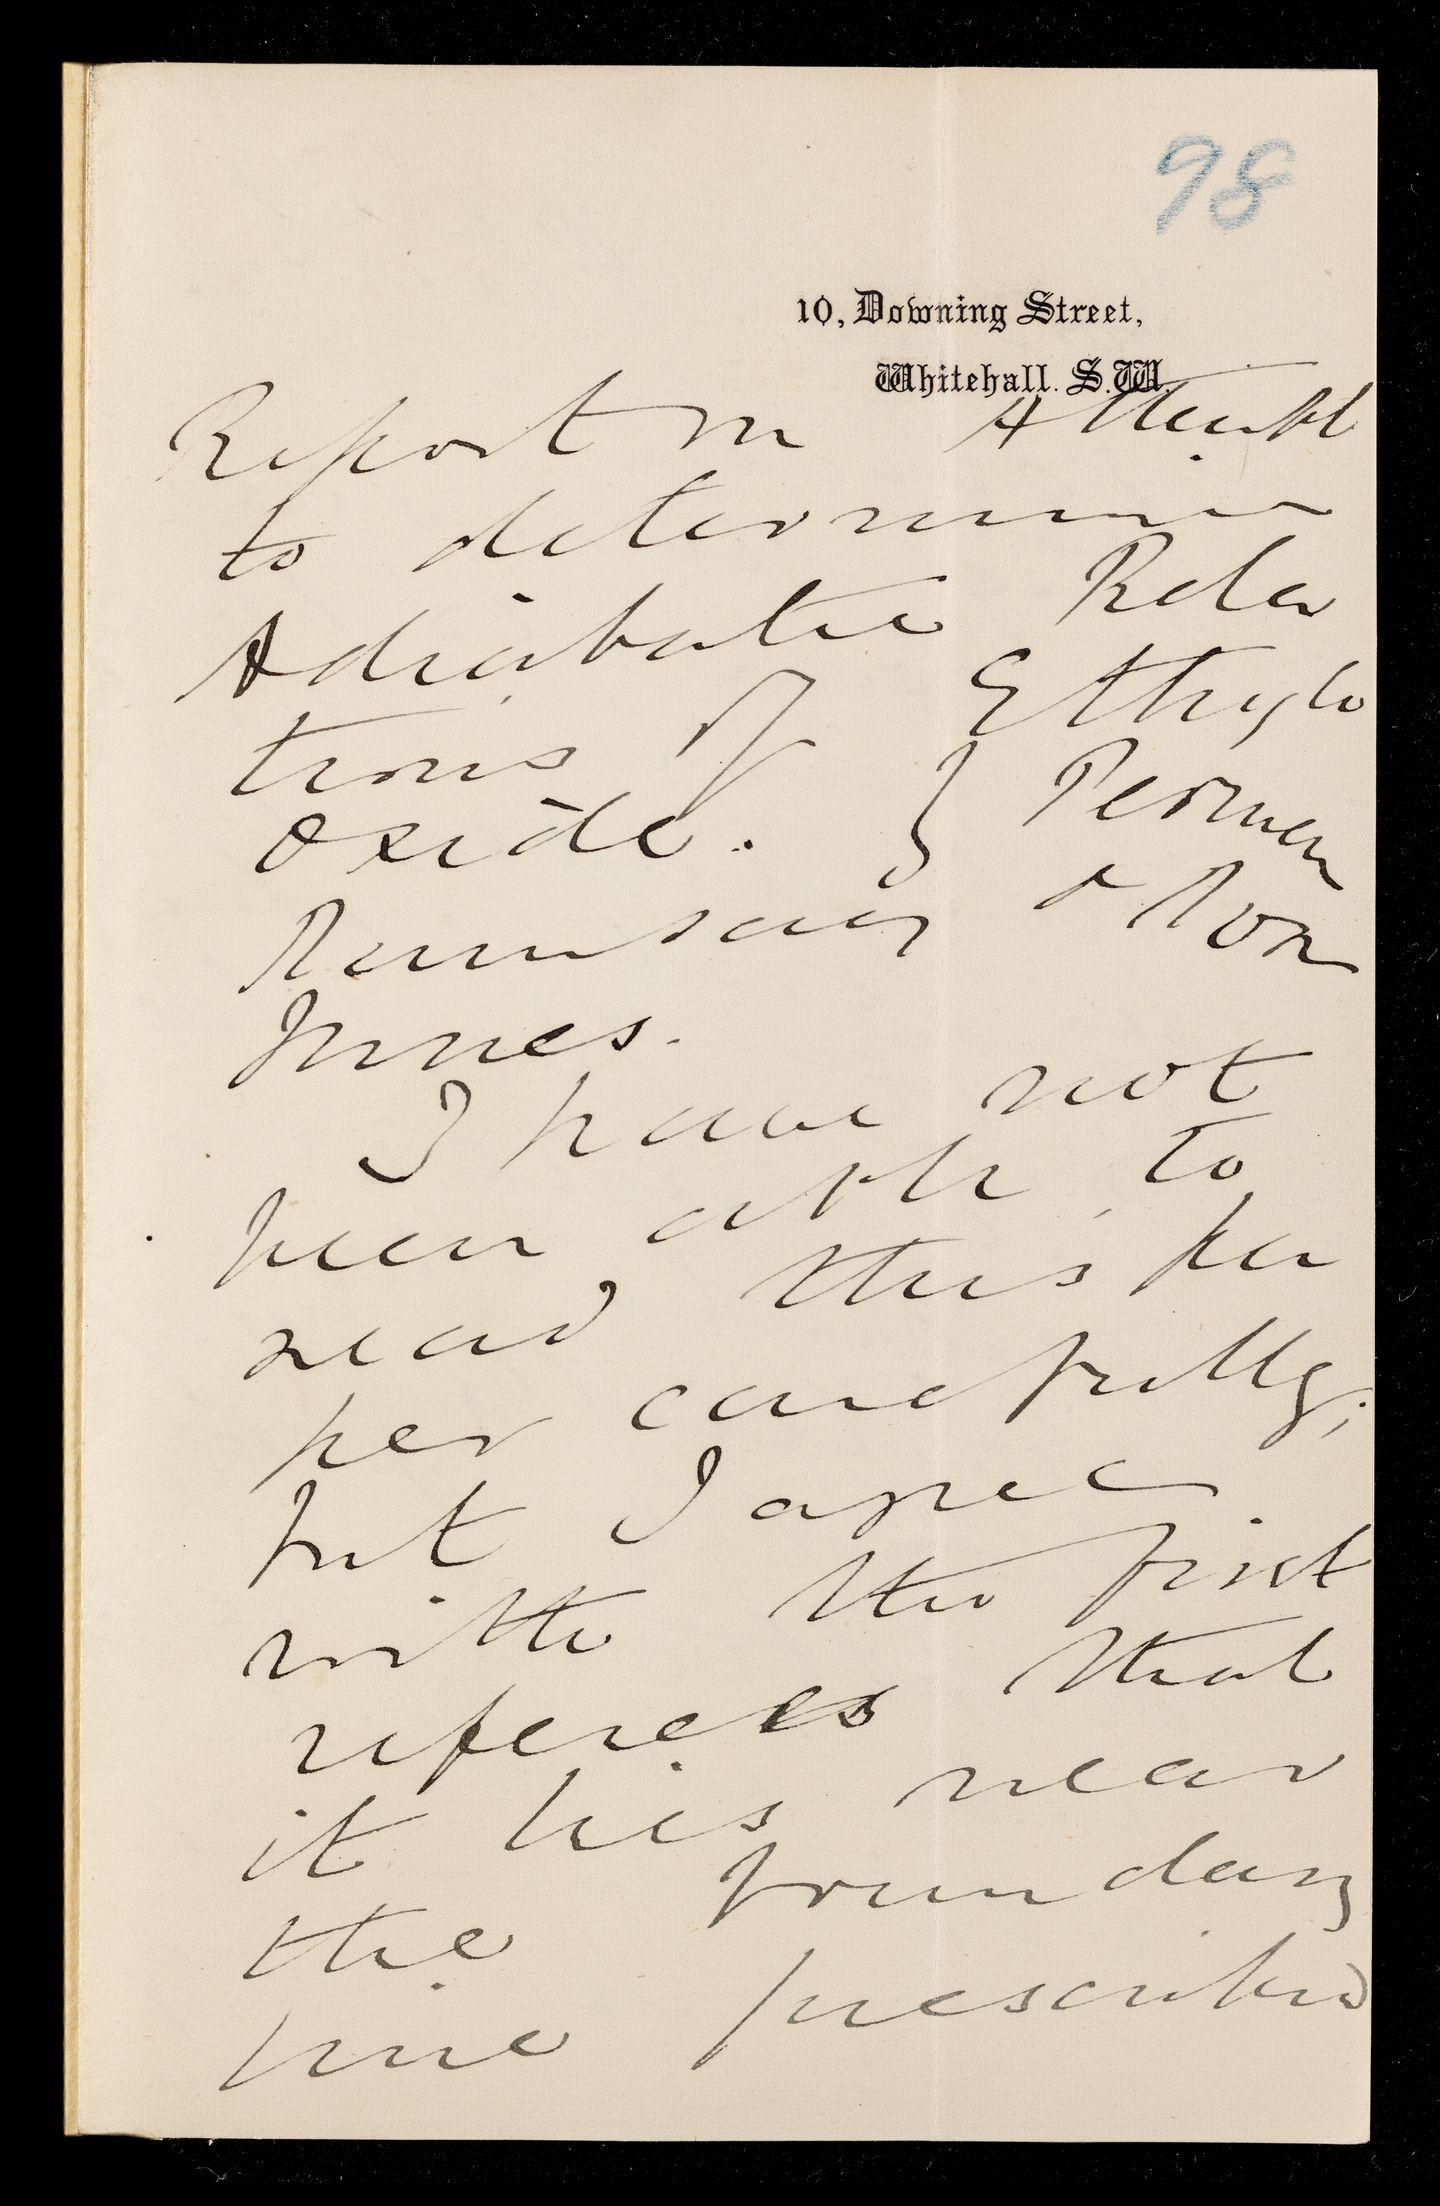 98
10, Downing Street,
Whitehall. S.W.
Report on Attempt
to determine
Adiabatic Rela
tions of Ethyle
Oxide. } Perman
Ramsay & Rose
Innes.
I have not
been able to
read this pa
per carefully;
but I agree
with the first
referees that
it lies near
the boundary
line prescribed